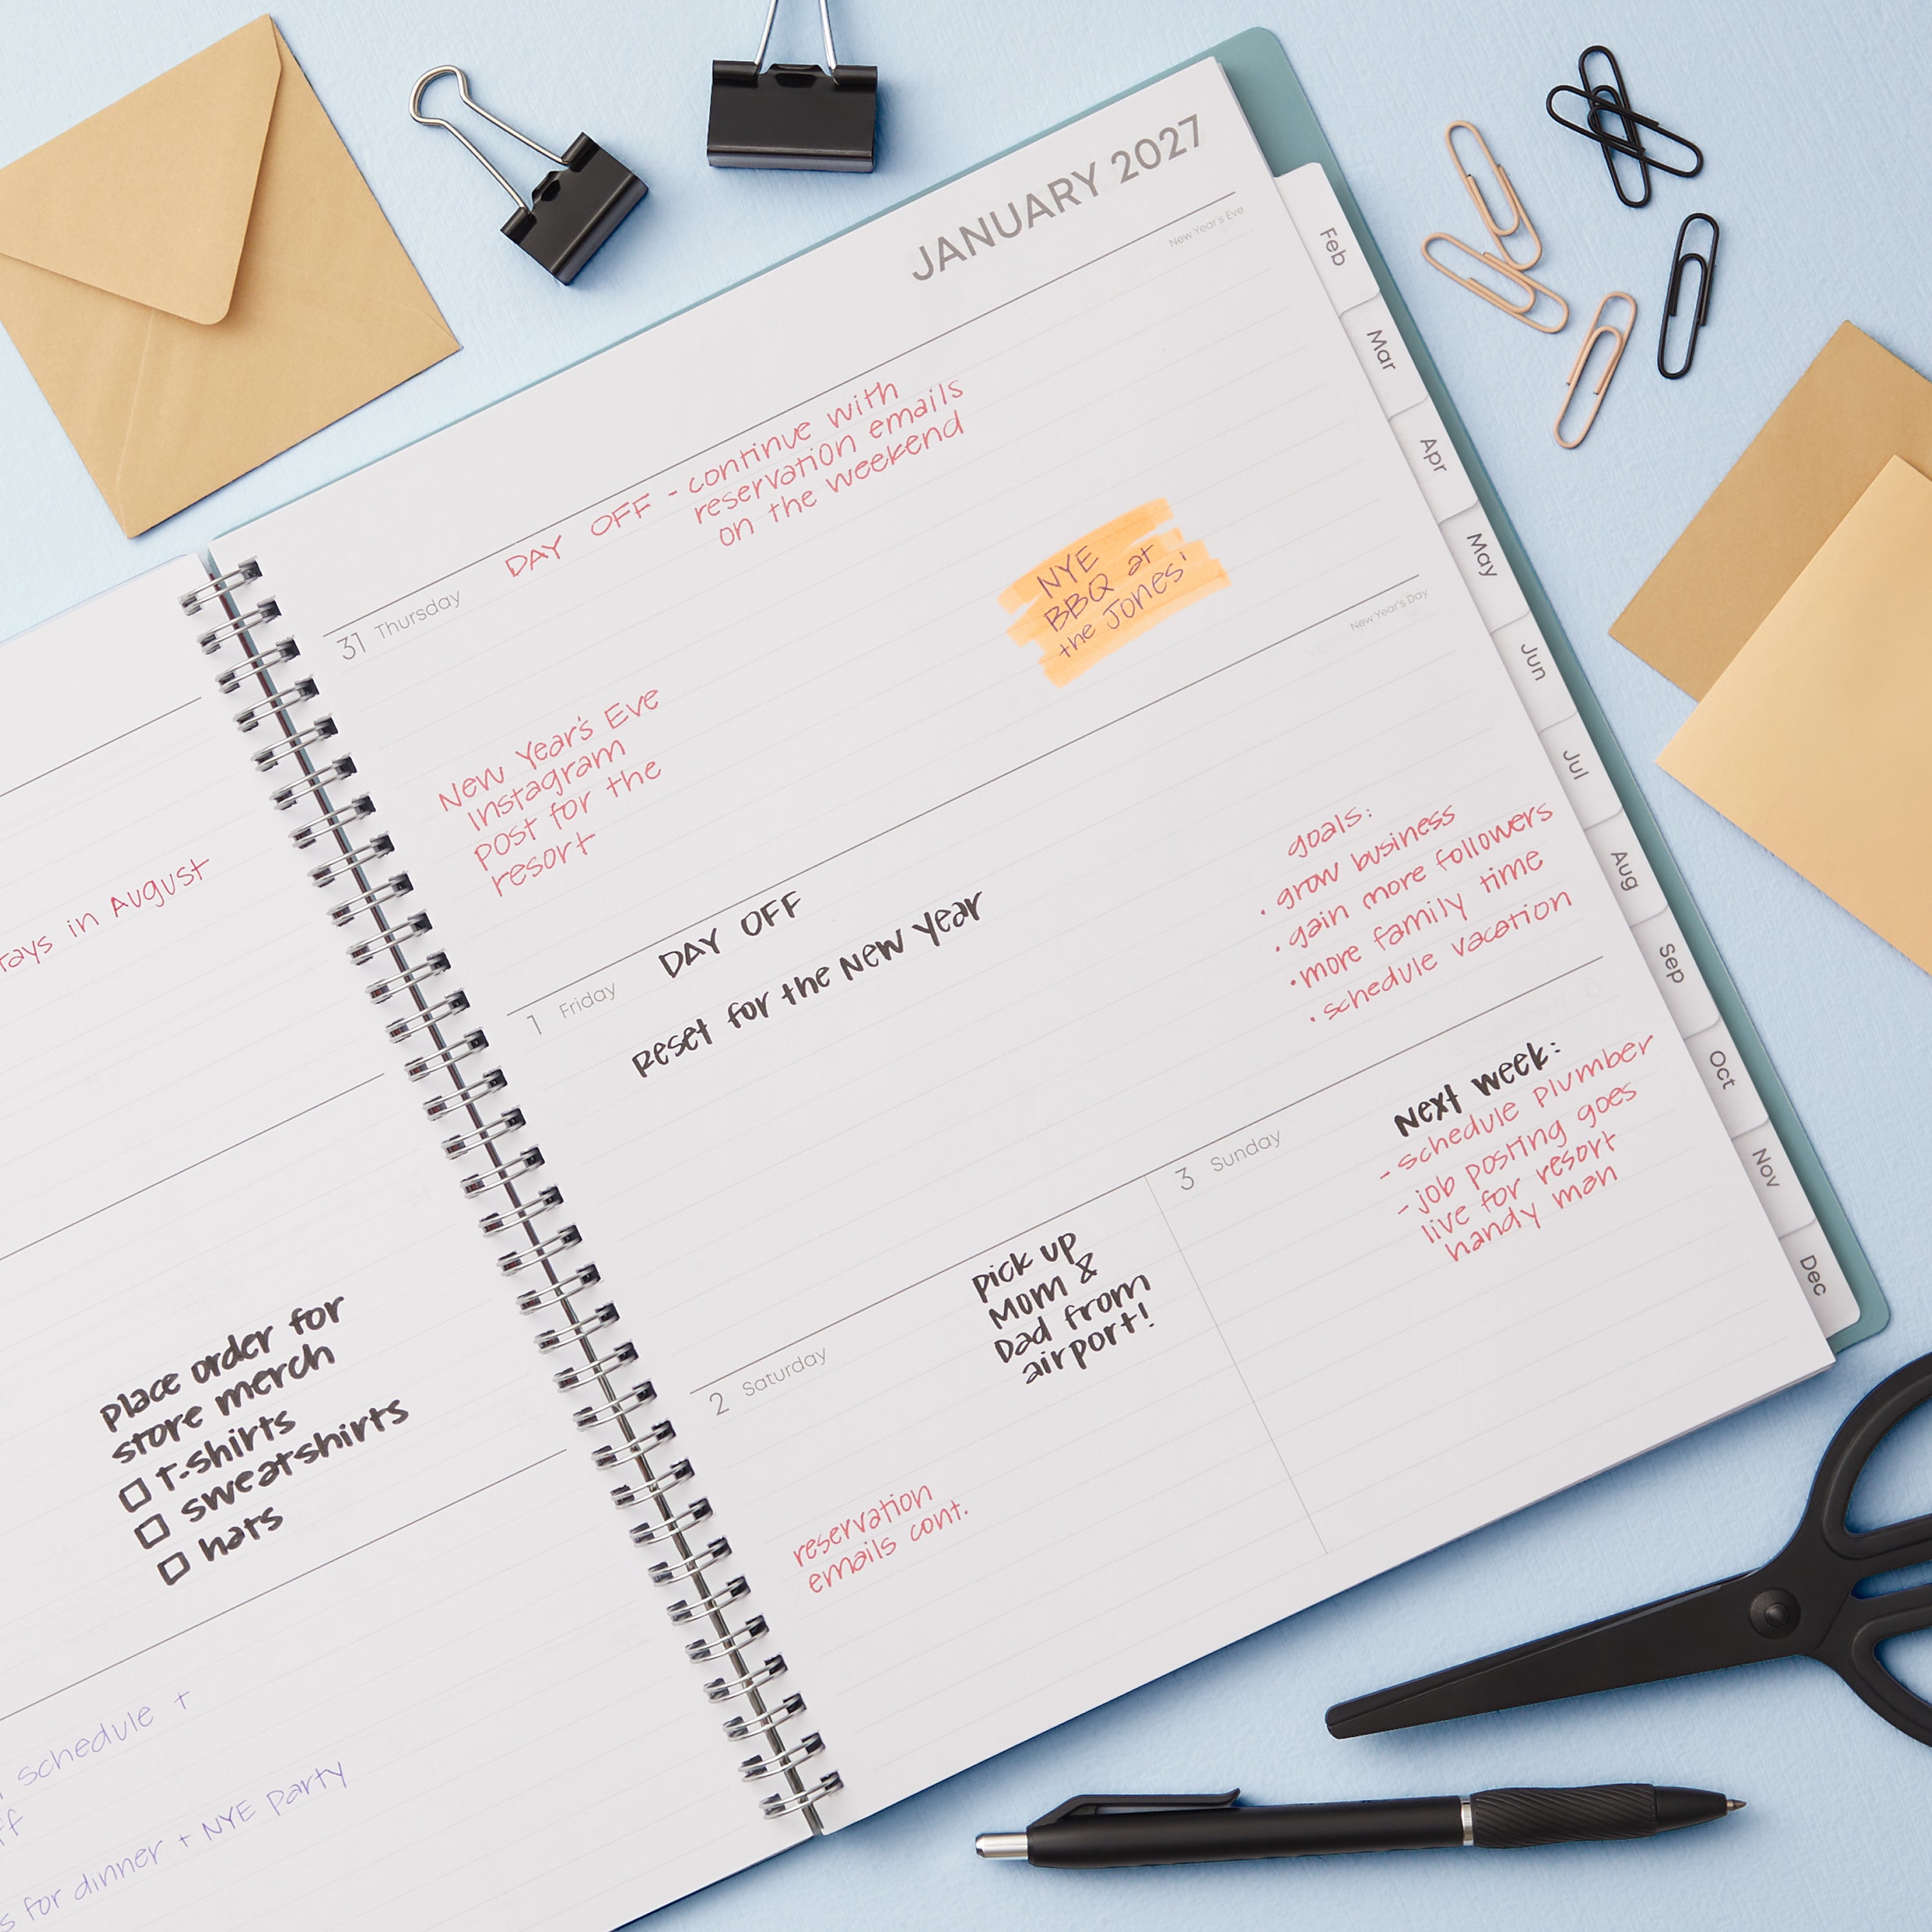 tays in August
Place order for
store merch
T-shirts
sweatshirts
hats
schedule +
for dinner + NYE Party
JANUARY 2027
New Year's Eve
31 Thursday
DAY OFF - continue with
reservation emails
on the weekend
NYE
BBQ at
the Jones'
New Year's Eve
Instagram
post for the
resort
New Year's Day
1 Friday
DAY OFF
Reset for the New Year
goals:
• grow business
• gain more followers
• more family time
• schedule vacation
2 Saturday
Pick up
Mom &
Dad from
airport!
reservation
emails cont.
3 Sunday
Next week:
- schedule plumber
- job posting goes
live for resort
handy man
Feb
Mar
Apr
May
Jun
Jul
Aug
Sep
Oct
Nov
Dec